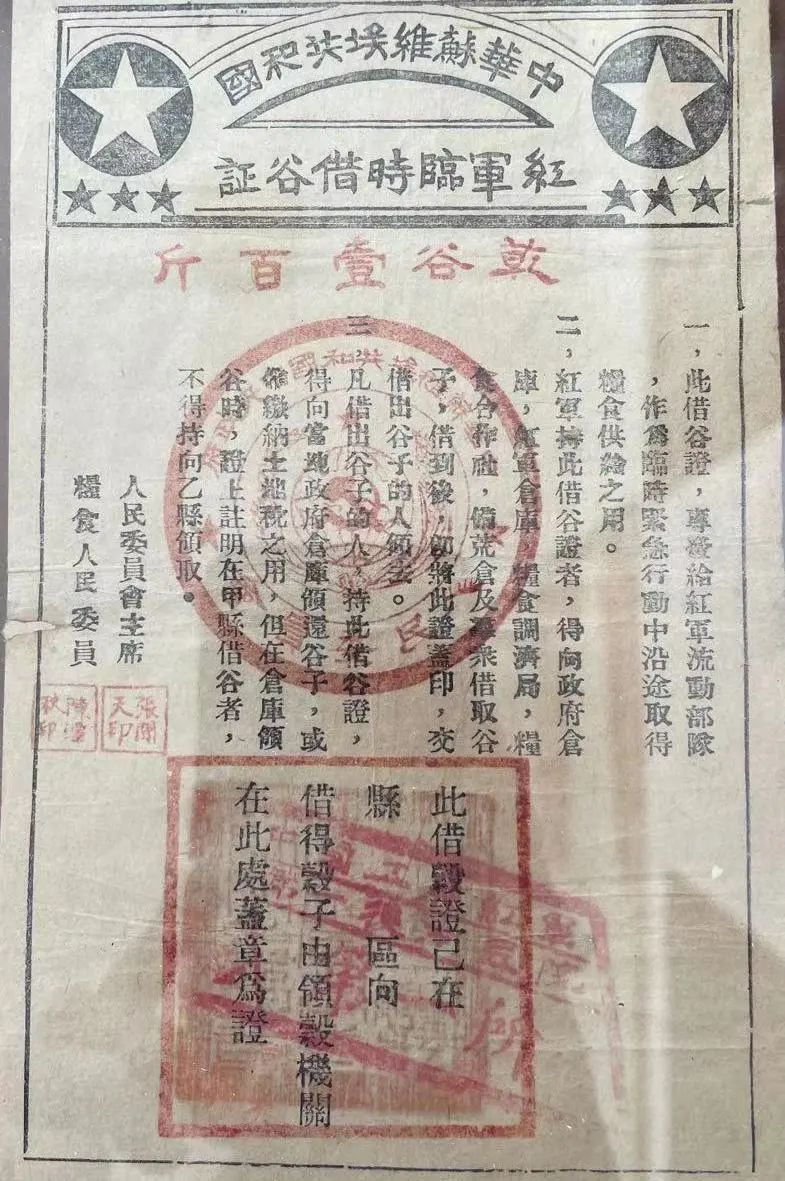 中華蘇維埃共和國
紅軍臨時借谷証
乾谷壹百斤
一，此借谷證，專發給紅軍流動部隊
，作爲臨時緊急行動中沿途取得
糧食供給之用。
二，紅軍持此借谷證者，得向政府倉
庫，紅軍倉庫，糧食調濟局，糧
食合作社，備荒倉及羣衆借取谷
子，借到後，卽將此證蓋印，交
借出谷子的人領去。
三 凡借出谷子的人，持此借谷證，
得向當地政府倉庫領還谷子，或
作繳納土地稅之用，但在倉庫領
谷時，證上註明在甲縣借谷者，
不得持向乙縣領取。
人民委員會主席
糧食人民委員
張聞天印
陳潭秋印
此借穀證已在
縣 區向
借得穀子由領穀機關
在此處蓋章爲證